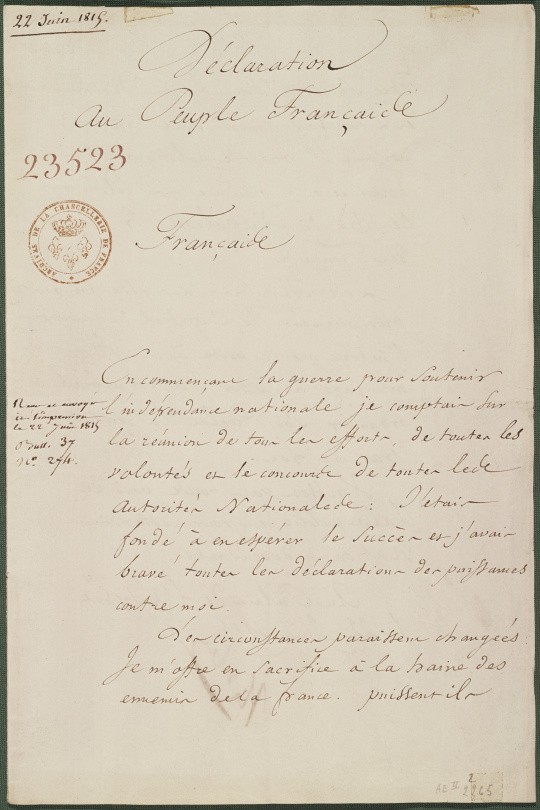 22 Juin 1815.
Déclaration
au Peuple Français
23523
ARCHIVES DE LA CHANCELLERIE DE FRANCE
Français
En commençant la guerre pour soutenir
l'indépendance nationale je comptais sur
la réunion de tous les efforts, de toutes les
volontés et le concours de toutes les
autorités Nationales : J'étais
fondé à en espérer le succès et j'avais
bravé toutes les déclarations des puissances
contre moi.
Les circonstances paraissent changées
Je m'offre en sacrifice à la haine des
ennemis de la france. puissent ils
envoyé
l'impression
le 22 Juin 1815
Bull. 37
N.º 274.
AE II 2
2265